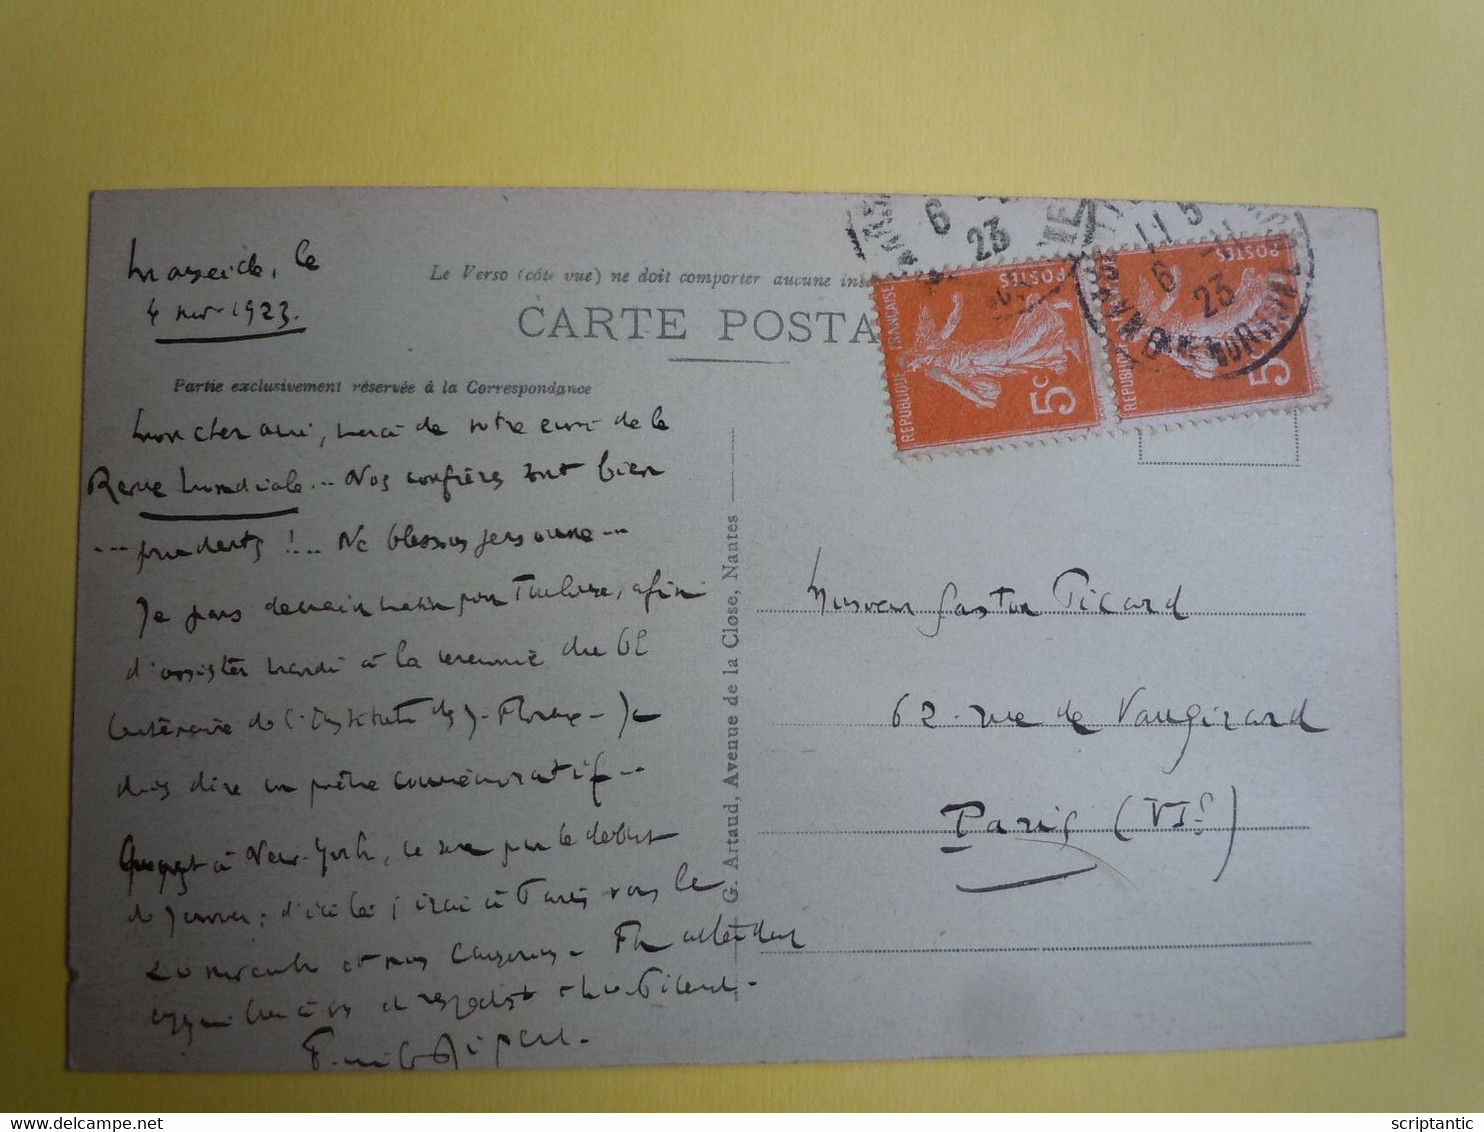 Marseille, le
4 nov. 1923.
Le Verso (côté vue) ne doit comporter aucune ins
CARTE POSTA
Partie exclusivement réservée à la Correspondance
Mon cher ami, merci de votre envoi de la
Revue Mondiale... Nos confrères sont bien
... prudents !... Ne blessons personne...
Je pars demain matin pour Toulouse, afin
d'assister mardi à la
littéraire de l'Institut des J. Floraux. Je
dois dire un poème commémoratif...
Quant à New-York, ce sera pour le début
de Janvier; d'ici là j'irai à Paris vers le
20 novembre et nous causerons. En attendant
et respects à Mme Picard.
Emile Ripert.
G. Artaud, Avenue de la Close, Nantes
Monsieur Gaston Picard
62. rue de Vaugirard
Paris (VIe)
REPUBLIQUE FRANÇAISE
POSTES
5c
REPUBLIQUE
POSTES
5
6
23
6 -11
23
scriptantic